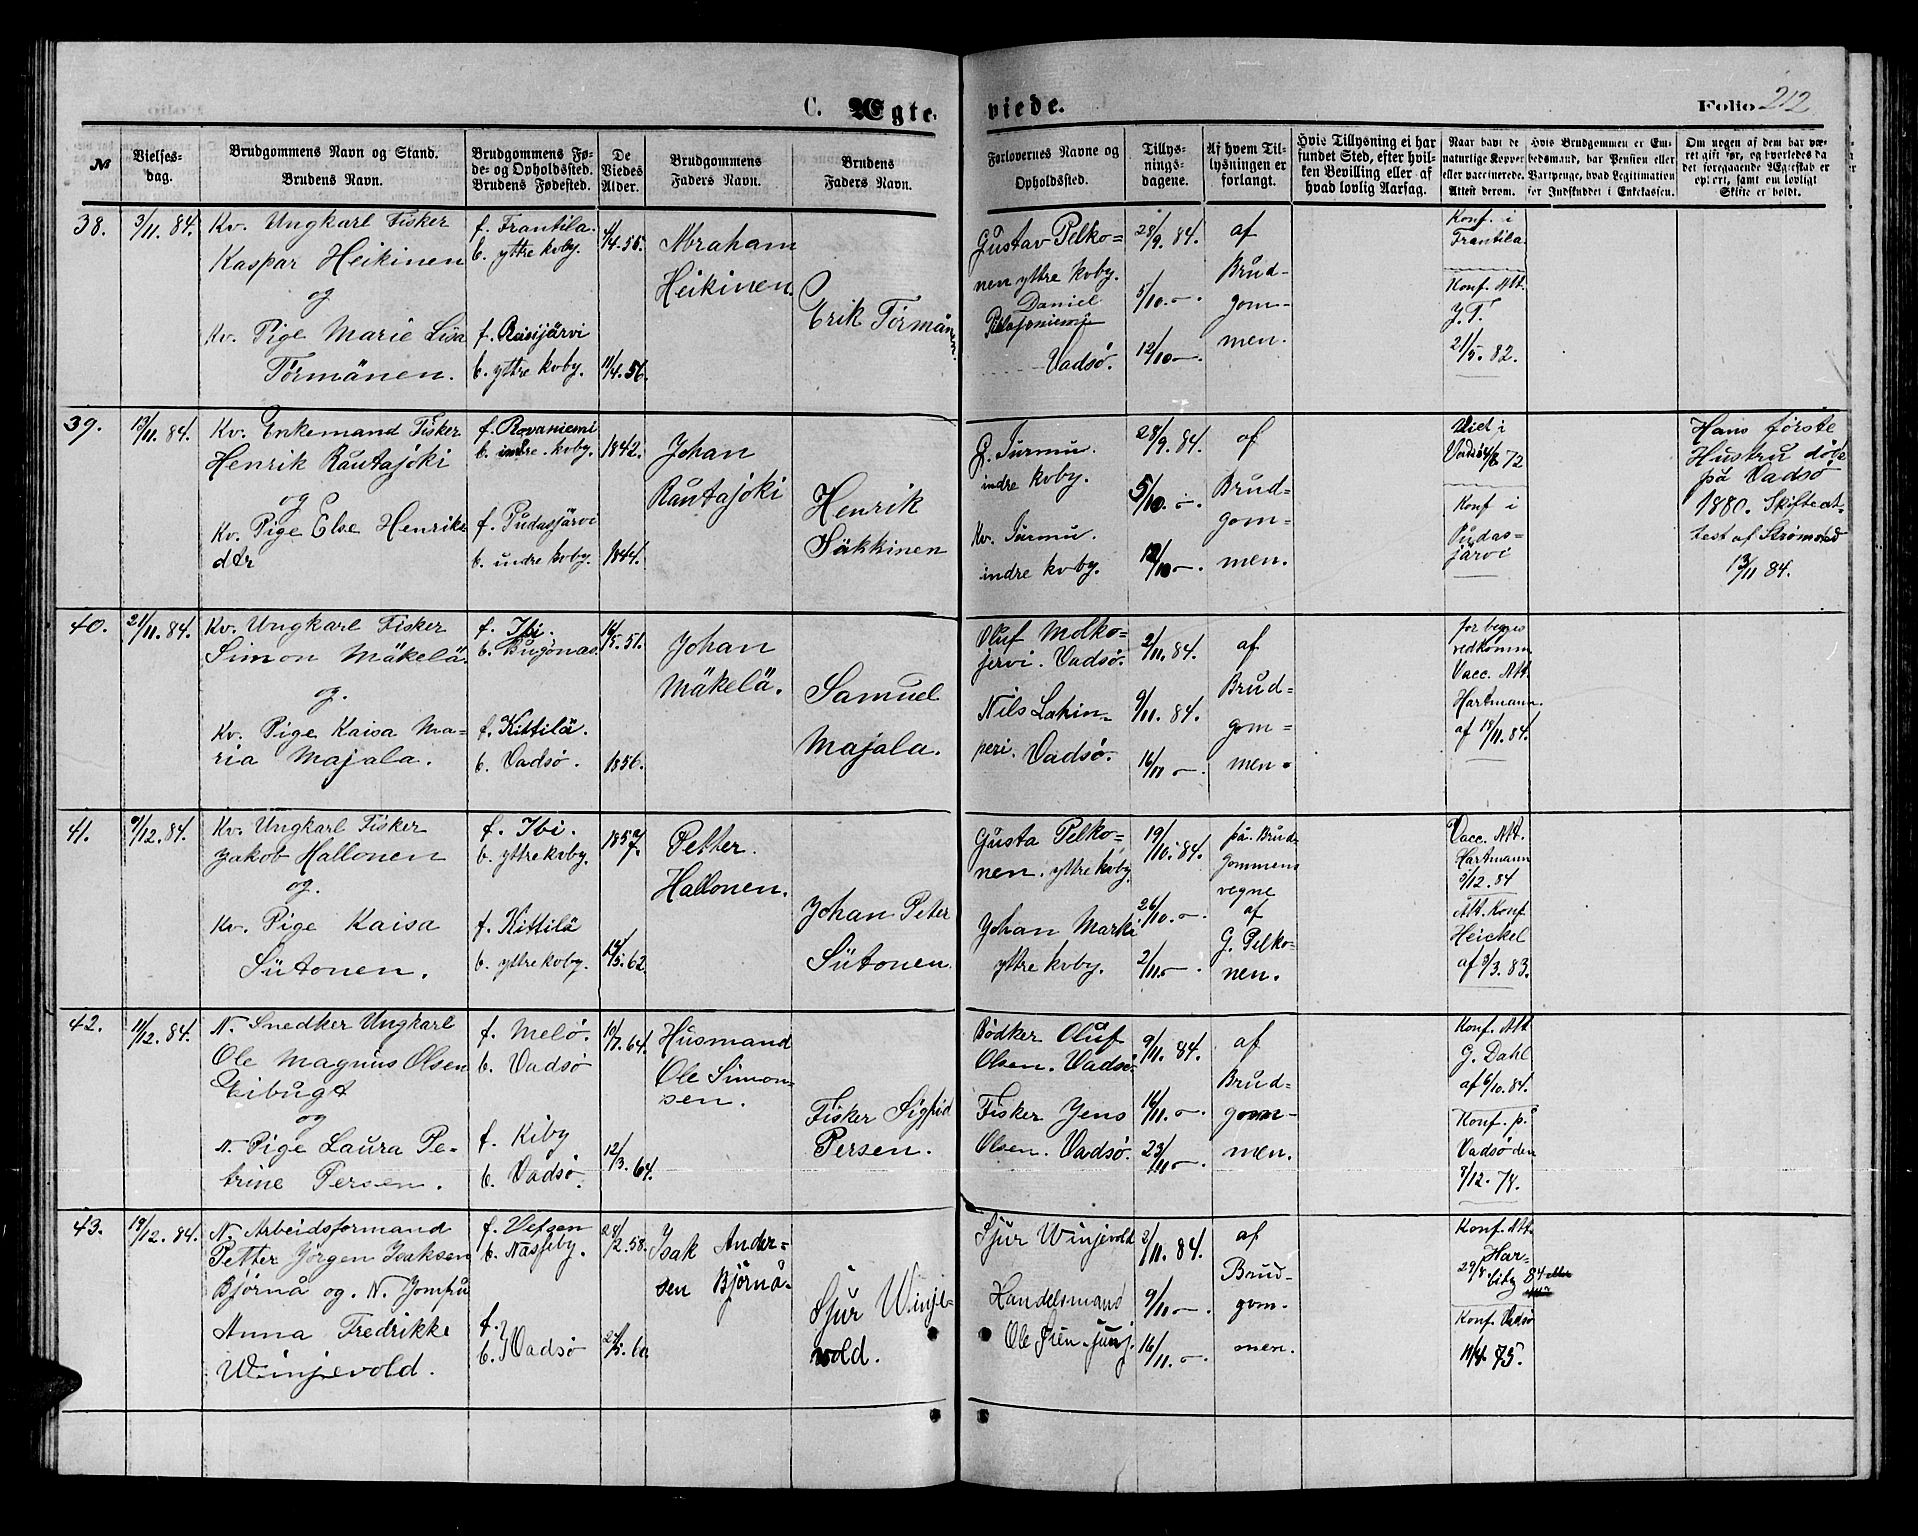 C. Ægte-
viede.
Folio 212
№
Vielses-
dag.
Brudgommens Navn og Stand.
Brudens Navn.
Brudgommens Fø-
de- og Opholdssted.
Brudens Fødested.
De
Viedes
Alder.
Brudgommens
Faders Navn.
Brudens
Faders Navn.
Forlovernes Navne og
Opholdssted.
Tillys-
nings-
dagene.
Af hvem Til-
lysningen er
forlangt.
Hvis Tillysning ei har
fundet Sted, efter hvil-
ken Bevilling eller af
hvad lovlig Aarsag.
Naar havt de
naturlige Kopper
eller vaccinerede.
Attest derom.
Hvis Brudgommen er Em-
bedsmand, har Pension eller
Vartpenge, hvad Legitimation
for Indskuddet i Enkekassen.
Om nogen af dem har væ-
ret gift før, og hvorledes da
det foregaaende Ægteskab er
ophørt, samt om lovligt
Skifte er holdt.
38.
3/11. 84.
Kv. Ungkarl Fisker
Kaspar Heikinen
og
Kv. Pige Marie Lisa
Törmänen.
f. Frantila.
b. yttre kvby.
f. Reisijärvi
b. yttre kvby.
4/4. 56.
11/4. 56.
Abraham
Heikinen.
Erik Törmänen.
Gustav Pelko=
nen yttre kvby.
Daniel
Vadsö.
28/9. 84.
5/10. -
12/10 -
af
Brud-
gom-
men.
Konf. i
Frantila.
Konf. Att.
J. T.
21/5. 82.
39.
13/11. 84.
Kv. Enkemand Fisker
Henrik Rautajoki
og
Kv. Pige Else Henriks
dtr
f. Rovaniemi
b. indre. kvby.
f. Pudasjärvi
b. indre kvby.
1842.
1844.
Johan
Rautajoki
Henrik
Säkkinen
G. Turmu.
indre kvby.
Kv. Turmu.
indre kvby.
28/9. 84.
5/10. -
12/10 -
af
Brud=
gom-
men.
Viet i
Vadsö 4/6 72
Konf i
Pudas-
järvi
Hans første
Hustru døde
på Vadsö
1880. Skifteat-
test af Strömsted
13/11 84.
40.
21/11. 84.
Kv. Ungkarl Fisker
Simon Mäkelä.
og.
Kv. Pige Kaisa Ma-
ria Majala.
f. Ibi.
b. Bugönas.
f. Kittilä.
b. Vadsö.
16/5. 51.
1856.
Johan
Mäkelä.
Samuel
Majala.
Oluf Molko=
jervi. Vadsö.
Nils Lahin-
peri. Vadsö.
2/11. 84.
9/11. 84.
16/11 -
af
Brud-
gom=
men.
for beges
vedkomm.
Vacc. Att.
Hartmann.
af 18/11. 84.
41.
9/12. 84.
Kv. Ungkarl Fisker
Jakob Hallonen
og.
Kv. Pige Kaisa
Sütonen.
f. Ibi.
b. yttre kvby.
f. Kittilä
b. yttre kvby.
1857.
14/5. 62.
Petter.
Hallonen.
Johan Peter
Sütonen.
Gusta Pelko=
nen. yttre kvby.
Johan Marki
yttre kvby.
19/10. 84.
26/10. -
2/11. -
på. Brud-
gommens
vegne
af
G. Pelko-
nen.
Vacc. Att.
Hartmann
5/12. 84
Att. Konf
Heickel
af 3/3. 83.
42.
11/12. 84.
N. Snedker Ungkarl
Ole Magnus Olsen
Eibugt
og
N. Pige Laura Pe-
trine Persen.
f. Melö.
b. Vadsö
f. Kiby
b. Vadsö.
10/7. 64.
12/3. 64.
Husmand
Ole Simon-
sen.
Fisker Sigfrid
Persen.
Bödker Oluf
Olsen. Vadsö.
Fisker Jens
Olsen. Vadsö.
9/11. 84.
16/11. -
23/11 -
af
Brud-
gom-
men.
Konf. Att
G. Dahl
af 6/10. 84.
Konf. på
Vadsö den
7/12. 79.
43.
19/12. 84.
N. Arbeidsformand
Petter Jörgen Isaksen
Bjørnå og. N. Jomfru
Anna Fredrikke
Winjevold.
f. Vefsen
b. Næsseby.
f.
b. Vadsö
28/2. 58.
24/5. 60
Isak Ander=
sen Bjørnå.
Sjur Winje-
vold.
Sjur Winjevold
Handelsmand
Ole Sien. junj.
2/11. 84.
9/11 -
16/11. -
af
Brud-
gom-
men.
Konf. Att.
Har-
bitz 84
29/8.
Konf. Vadsö
11/4. 75.